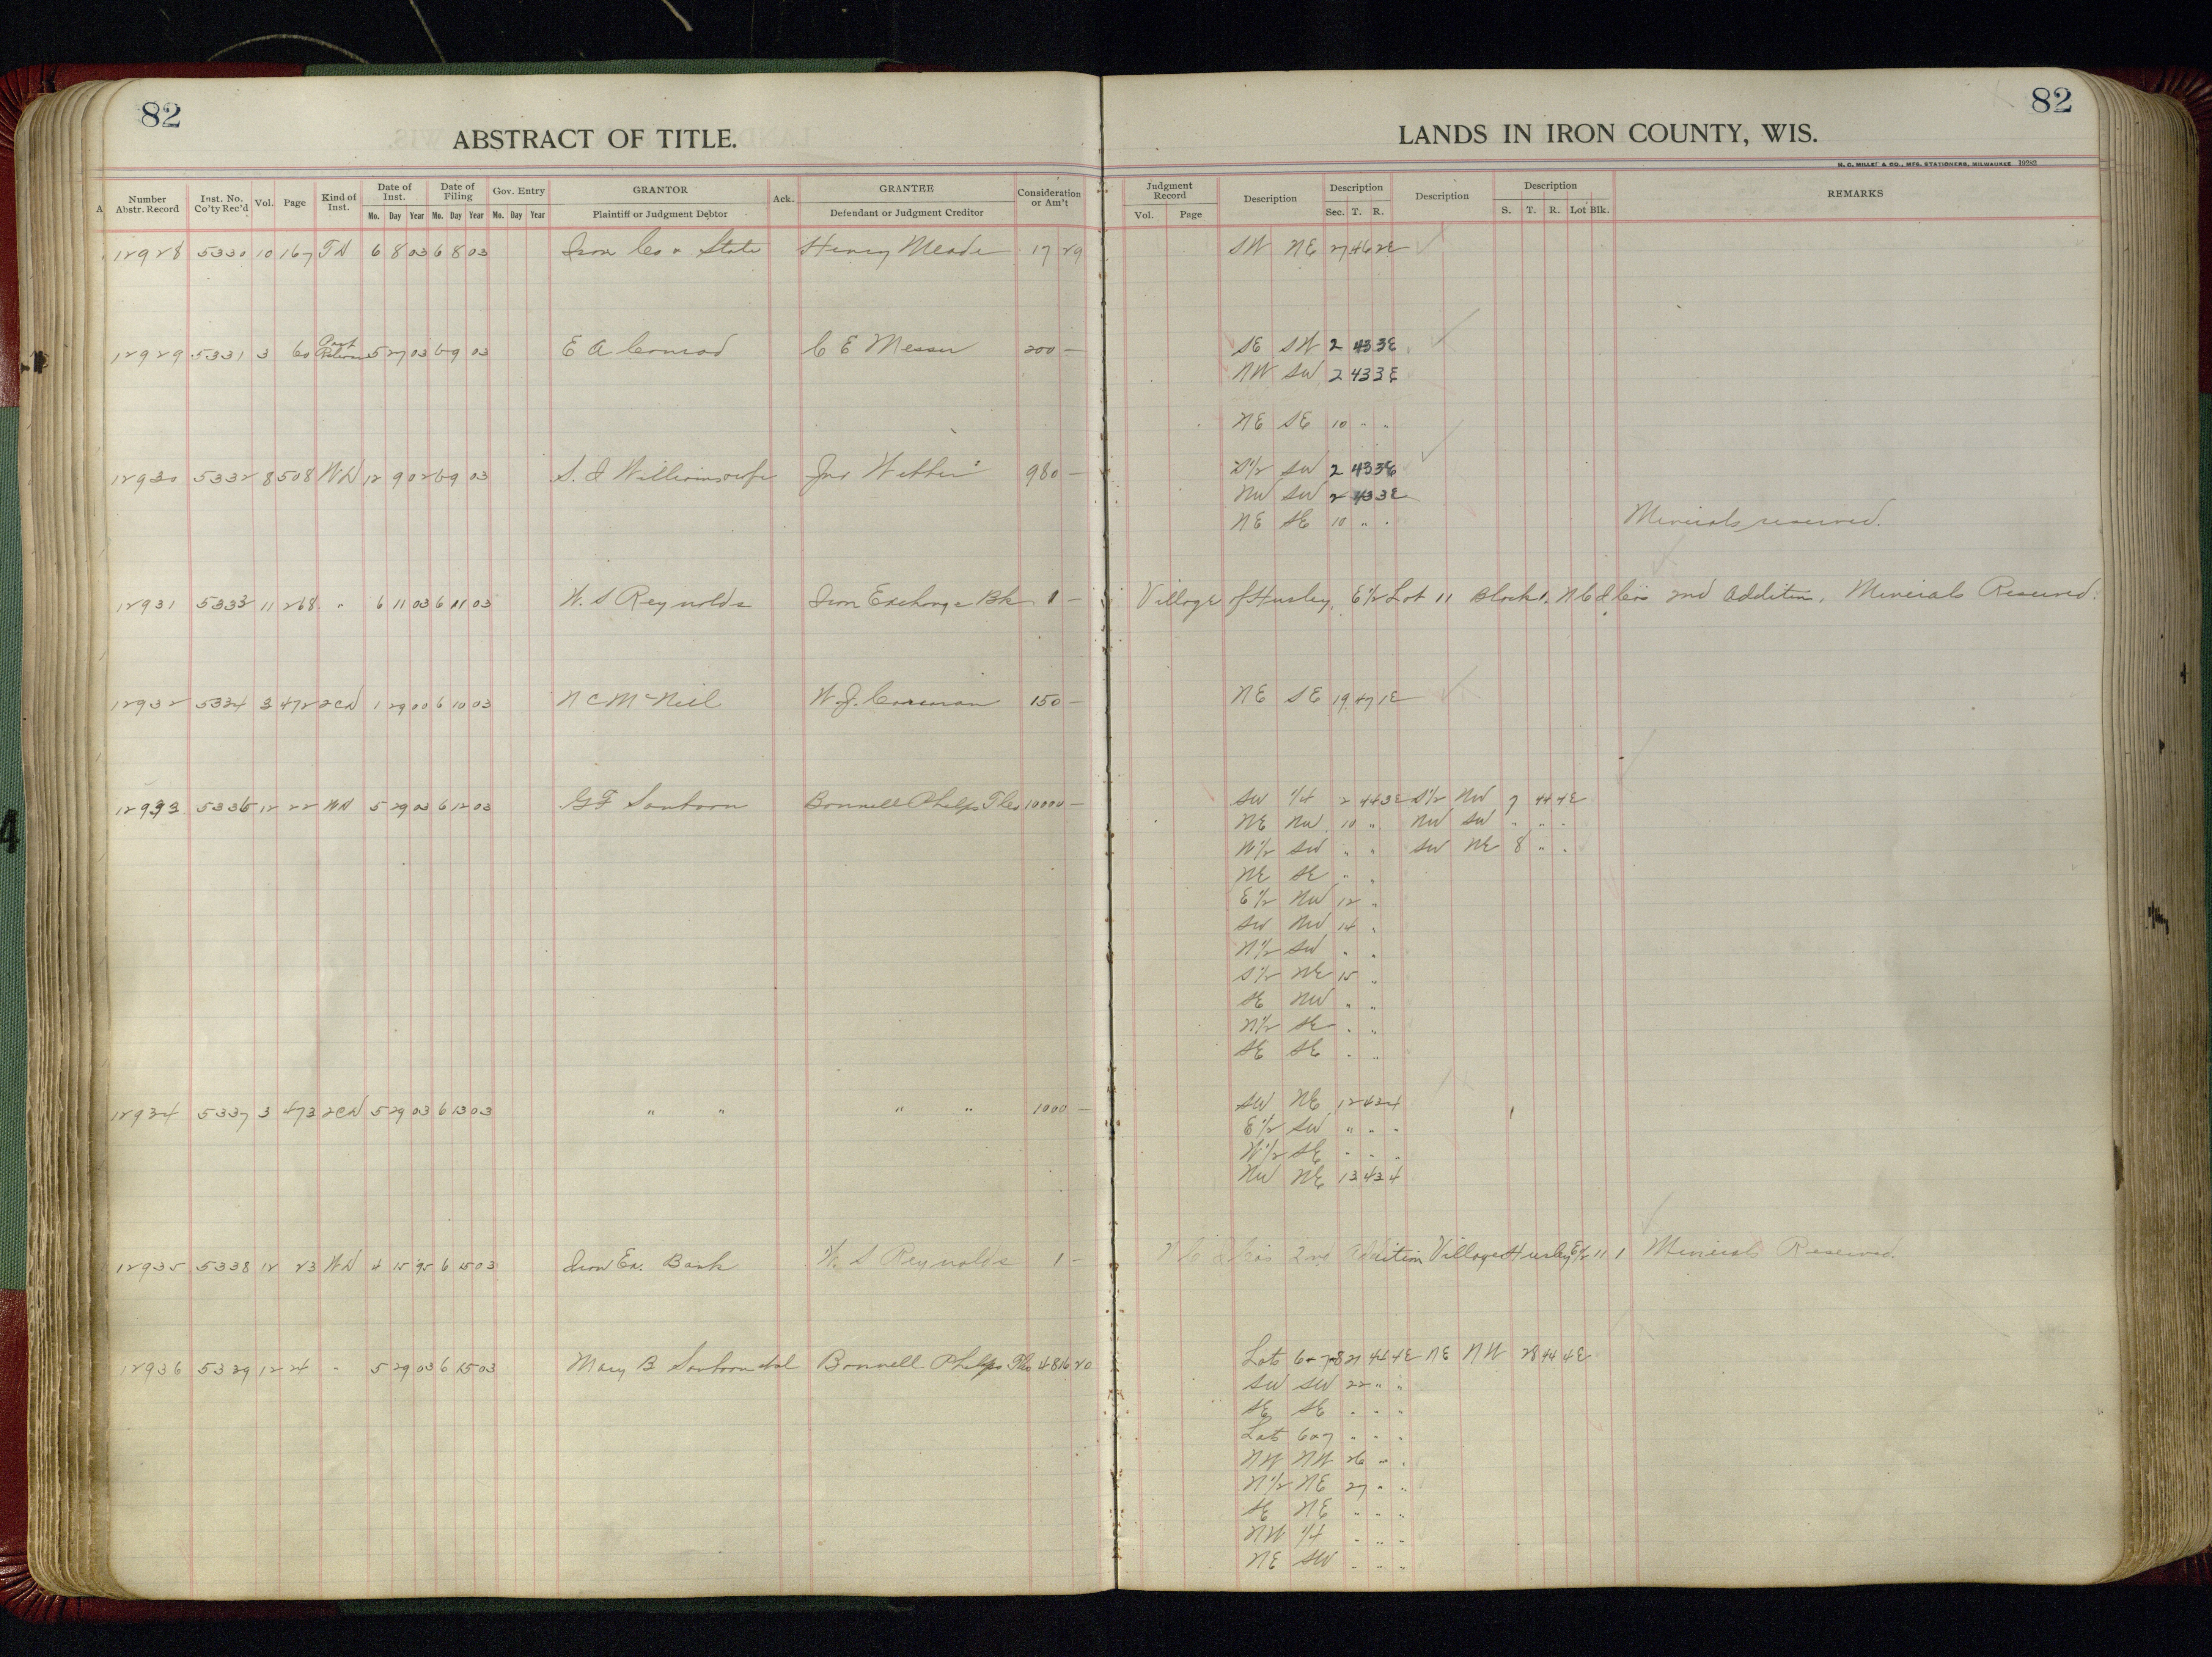 82
ABSTRACT OF TITLE.
82
LANDS IN IRON COUNTY, WIS.
H. C. MILLER & CO., MFG. STATIONERS, MILWAUKEE 19282
A Number Abstr. Record Inst. No. Co'ty Rec'd Vol. Page Kind of Inst. Date of Inst. Mo. Day Year Date of Filing Mo. Day Year Gov. Entry Mo. Day Year GRANTOR Plaintiff or Judgment Debtor Ack. GRANTEE Defendant or Judgment Creditor Consideration or Am't
Judgment Record Vol. Page Description Description Sec. T. R. Description Description S. T. R. Lot Blk. REMARKS
12928 5330 10 167 TD 6 8 03 6 8 03 Iron Co & State Henry Meade 17 29 SW NE 27 46 2E
12929 5331 3 60 Part Release 5 27 03 6 9 03 E A Conrad C E Messer 200 — SE SW 2 43 3E
NW SW 2 43 3E
NE SE 10 " "
12930 5332 8 508 WD 12 9 02 6 9 03 S. I Williams wife Jno 980 — S1/2 SW 2 43 3E
NW SW 2 43 3E
NE SE 10 " " Minerals reserved.
12931 5333 11 268 " 6 11 03 6 11 03 W. S Reynolds Iron Exchange Bk 1 — Village of Hurley, E1/2 Lot 11 Block 1, N C I Cos 2nd Addition. Minerals Reserved.
12932 5334 3 472 2CD 1 29 00 6 10 03 N C McNiel W. J. 150 — NE SE 19 47 1E
12933 5336 12 22 WD 5 29 03 6 12 03 G F Sanborn Bonnell Phelps 10000 — SW 1/4 2 44 3E S1/2 NW 7 44 4E
NE NW 10 " NW SW " " "
N1/2 SW " " SW NE 8 " "
NE SE " "
E1/2 NW 12 "
SW NW 14 "
N1/2 SW " "
S1/2 NE 15 "
SE NW " "
N1/2 SE " "
SE SE " "
12934 5337 3 473 2CD 5 29 03 6 13 03 " " " " 1000 — SW NE 12 43 4
E1/2 SW " " "
W1/2 SE " " "
NW NE 13 43 4
12935 5338 12 23 WD 4 15 95 6 15 03 Iron Ex. Bank W. S Reynolds 1 — N C I Cos 2nd Addition Village Hurley E1/2 11 1 Minerals Reserved.
12936 5339 12 24 " 5 29 03 6 15 03 Mary B Sanborn etal Bonnell Phelps 4816 20 Lots 6-7-8 21 44 4E NE NW 28 44 4E
SW SW 22 " "
SE SE " " "
Lot 6&7 " " "
NW NW 26 " "
N1/2 NE 27 " "
SE NE " " "
NW 1/4 " " "
NE SW " " "